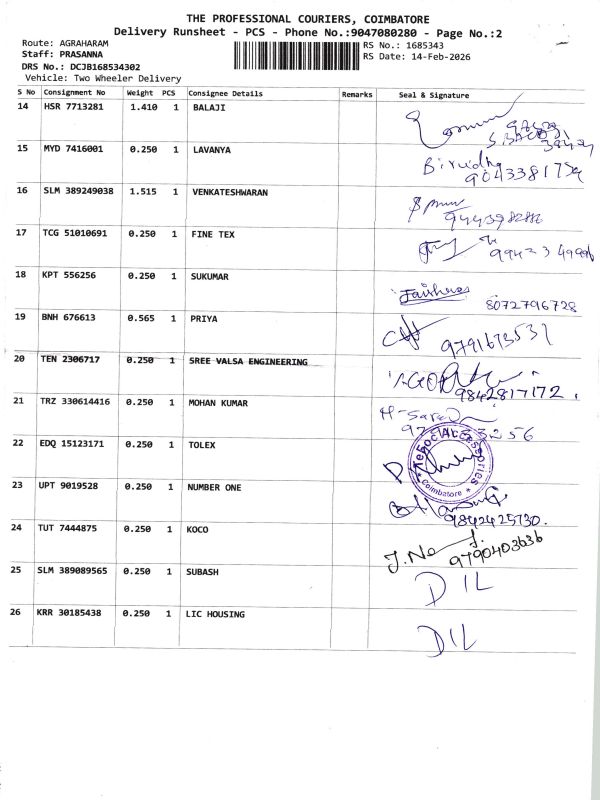 THE PROFESSIONAL COURIERS, COIMBATORE
Delivery Runsheet - PCS - Phone No.:9047080280 - Page No.:2
Route: AGRAHARAM
RS No.: 1685343
Staff: PRASANNA
RS Date: 14-Feb-2026
DRS No.: DCJB168534302
Vehicle: Two Wheeler Delivery
S No Consignment No Weight PCS Consignee Details Remarks Seal & Signature
14 HSR 7713281 1.410 1 BALAJI
15 MYD 7416001 0.250 1 LAVANYA
16 SLM 389249038 1.515 1 VENKATESHWARAN
17 TCG 51010691 0.250 1 FINE TEX
18 KPT 556256 0.250 1 SUKUMAR
8072796728
19 BNH 676613 0.565 1 PRIYA
9791673531
20 TEN 2306717 0.250 1 SREE VALSA ENGINEERING
9842817172.
21 TRZ 330614416 0.250 1 MOHAN KUMAR
22 EDQ 15123171 0.250 1 TOLEX
Coimbatore
23 UPT 9019528 0.250 1 NUMBER ONE
9842425730.
24 TUT 7444875 0.250 1 KOCO
9790403636
25 SLM 389089565 0.250 1 SUBASH
DIL
26 KRR 30185438 0.250 1 LIC HOUSING
DIL